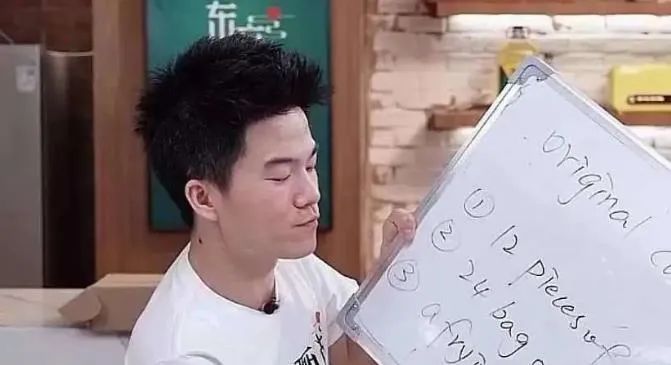 东
original
① 12 pieces of
② 24 bag
③ a fryi